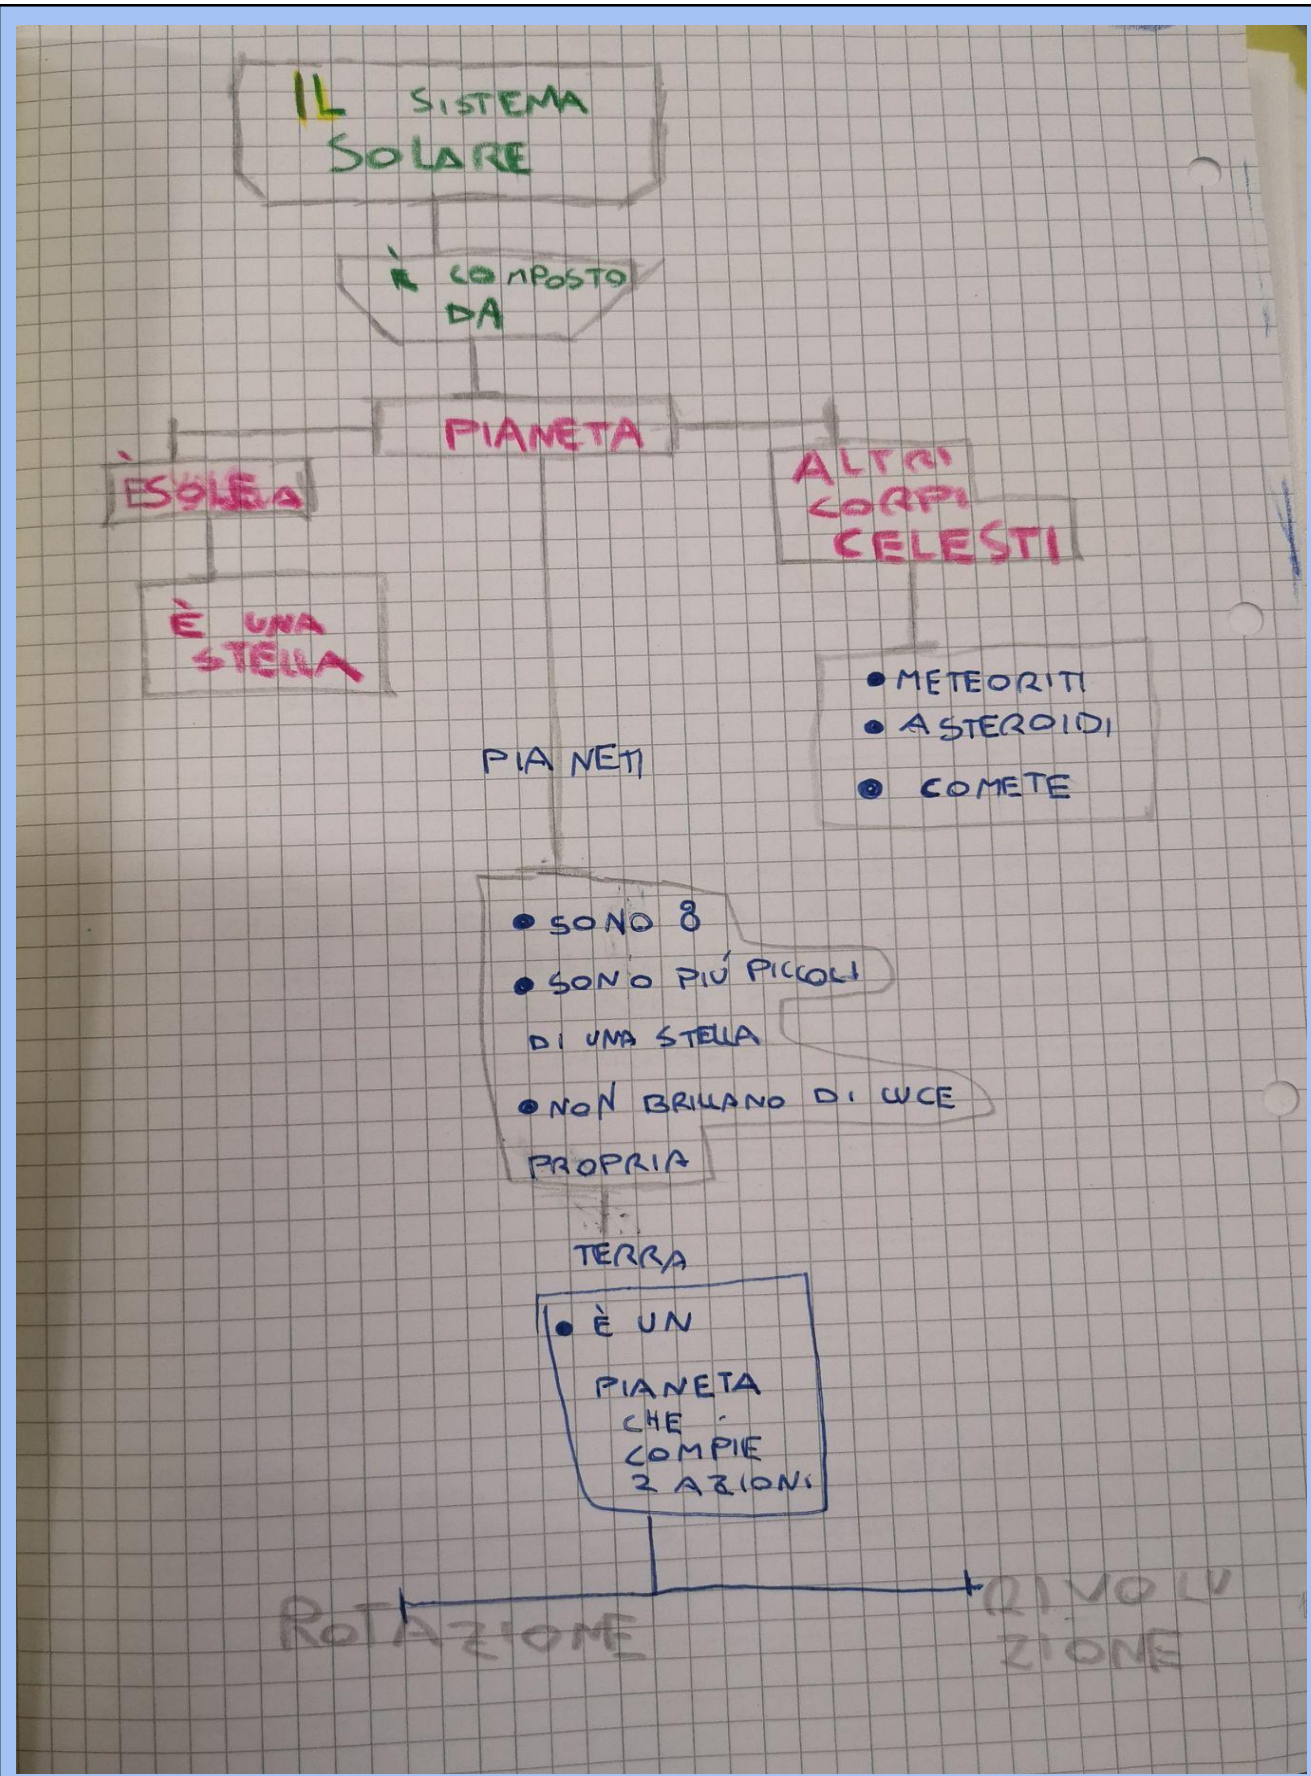 IL SISTEMA
SOLARE
È COMPOSTO
DA
PIANETA
SOLE
ALTRI
CORPI
CELESTI
È UNA
STELLA
• METEORITI
• ASTEROIDI
• COMETE
PIANETI
• SONO 8
• SONO PIÚ PICCOLI
DI UNA STELLA
• NON BRILLANO DI LUCE
PROPRIA
TERRA
• È UN
PIANETA
CHE
COMPIE
2 AZIONI
ROTAZIONE
RIVOLU
ZIONE